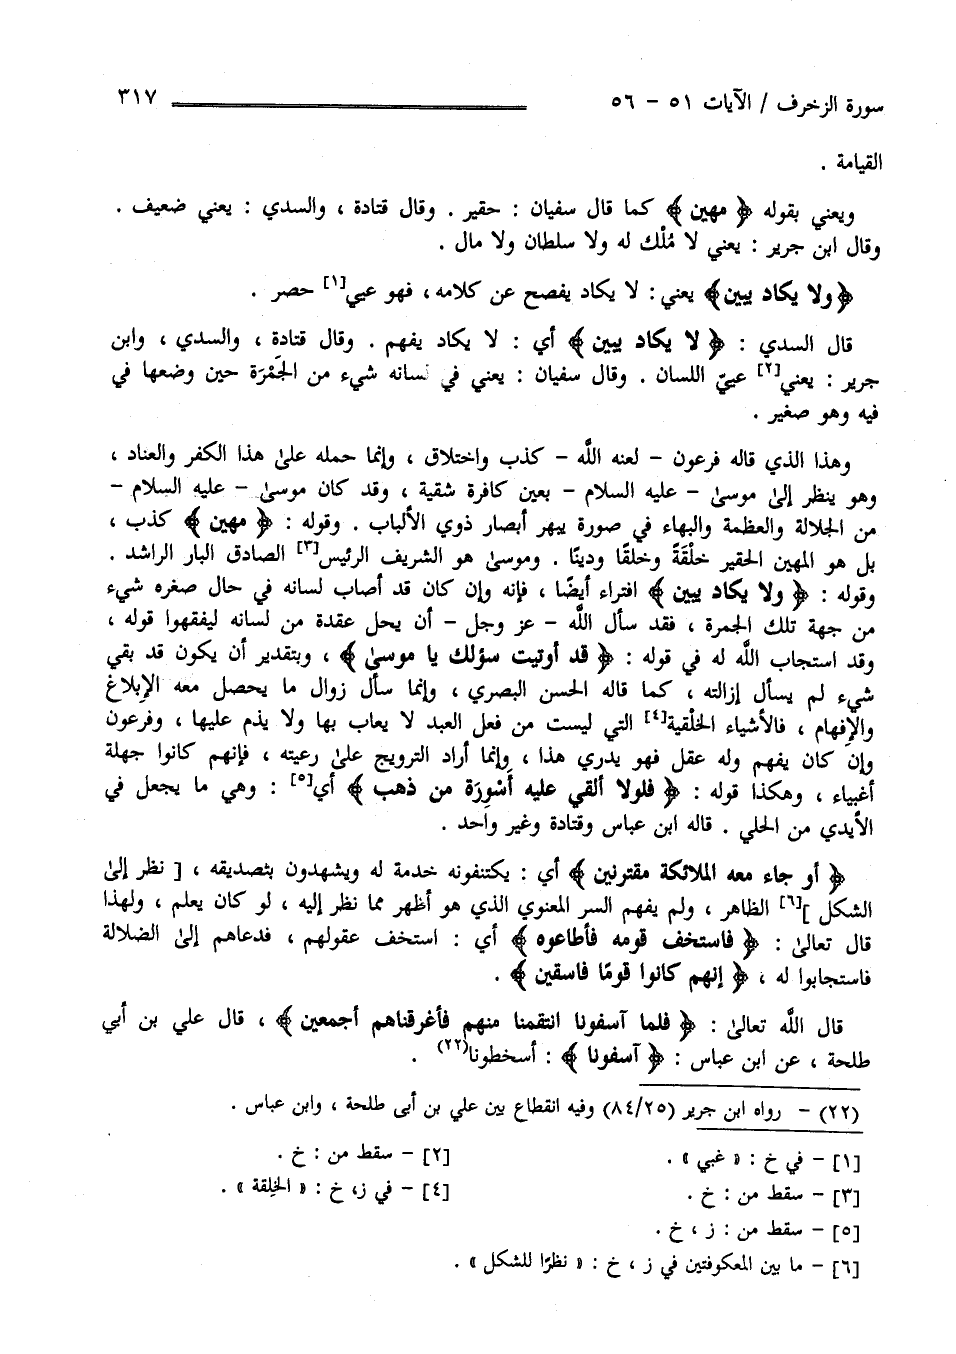 سورة الزخرف / الآيات ٥١ - ٥٦ ٣١٧
القيامة .
ويعني بقوله ﴿ مهين ﴾ كما قال سفيان : حقير . وقال قتادة ، والسدي : يعني ضعيف .
وقال ابن جرير : يعني لا مُلْك له ولا سلطان ولا مال .
﴿ولا يكاد يبين﴾ يعني : لا يكاد يفصح عن كلامه، فهو عيي[١] حصر .
قال السدي : ﴿ لا يكاد يبين ﴾ أي : لا يكاد يفهم . وقال قتادة ، والسدي ، وابن
جرير : يعني[٢] عييّ اللسان . وقال سفيان : يعني في لسانه شيء من الجَمْرَة حين وضعها في
فيه وهو صغير .
وهذا الذي قاله فرعون - لعنه اللَّه - كذب واختلاق ، وإنما حمله علىٰ هذا الكفر والعناد ،
وهو ينظر إلىٰ موسىٰ - عليه السلام - بعين كافرة شقية ، وقد كان موسىٰ - عليه السلام -
من الجلالة والعظمة والبهاء في صورة يبهر أبصار ذوي الألباب . وقوله : ﴿ مهين ﴾ كذب ،
بل هو المهين الحقير خلْقَةً وخلقًا ودينًا . وموسىٰ هو الشريف الرئيس[٣] الصادق البار الراشد .
وقوله : ﴿ ولا يكاد يبين ﴾ افتراء أيضًا ، فإنه وإن كان قد أصاب لسانه في حال صغره شيء
من جهة تلك الجمرة ، فقد سأل اللَّه - عز وجل - أن يحل عقدة من لسانه ليفقهوا قوله ،
وقد استجاب اللَّه له في قوله : ﴿ قد أوتيت سؤلك يا موسىٰ ﴾ ، وبتقدير أن يكون قد بقي
شيء لم يسأل إزالته ، كما قاله الحسن البصري ، وإنما سأل زوال ما يحصل معه الإبلاغ
والإفهام ، فالأشياء الخلْقية[٤] التي ليست من فعل العبد لا يعاب بها ولا يذم عليها ، وفرعون
وإن كان يفهم وله عقل فهو يدري هذا ، وإنما أراد الترويج علىٰ رعيته ، فإنهم كانوا جهلة
أغبياء ، وهكذا قوله : ﴿ فلولا ألقي عليه أَسْوِرَة من ذهب ﴾ أي[٥] : وهي ما يجعل في
الأيدي من الحلي . قاله ابن عباس وقتادة وغير واحد .
﴿ أو جاء معه الملائكة مقترنين ﴾ أي : يكتنفونه خدمة له ويشهدون بتصديقه ، [ نظر إلىٰ
الشكل ][٦] الظاهر ، ولم يفهم السر المعنوي الذي هو أظهر مما نظر إليه ، لو كان يعلم ، ولهذا
قال تعالىٰ : ﴿ فاستخف قومه فأطاعوه ﴾ أي : استخف عقولهم ، فدعاهم إلىٰ الضلالة
فاستجابوا له ، ﴿ إنهم كانوا قومًا فاسقين ﴾ .
قال اللَّه تعالىٰ : ﴿ فلما آسفونا انتقمنا منهم فأغرقناهم أجمعين ﴾ ، قال علي بن أبي
طلحة ، عن ابن عباس : ﴿ آسفونا ﴾ : أسخطونا(٢٢) .
(٢٢) - رواه ابن جرير (٨٤/٢٥) وفيه انقطاع بين علي بن أبى طلحة ، وابن عباس .
[١] - في خ : « غبي » . [٢] - سقط من : خ .
[٣] - سقط من : خ . [٤] - في ز، خ : « الخِلقة » .
[٥] - سقط من : ز ، خ .
[٦] - ما بين المعكوفتين في ز ، خ : « نظرًا للشكل » .